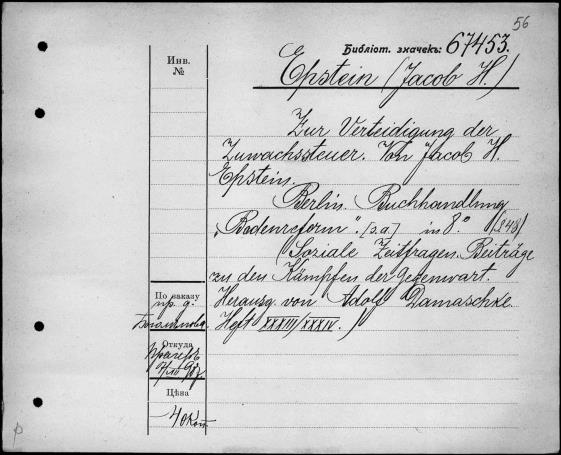 56
Библіот. значекъ: 67453.
Инв.
№
Epstein (Jacob H.)
Zur Verteidigung der
Zuwachssteuer. Von Jacob H.
Epstein.
Berlin. Buchhandlung
„Bodenreform". [s.a.] in 8.° (248)
(Soziale Zeitfragen. Beiträge
zu den Kämpfen der Gegenwart.
Herausg. von Adolf Damaschke
Heft XXXIII/XXXIV.)
По заказу
пр. д.
Откуда
Цѣна
40 коп.